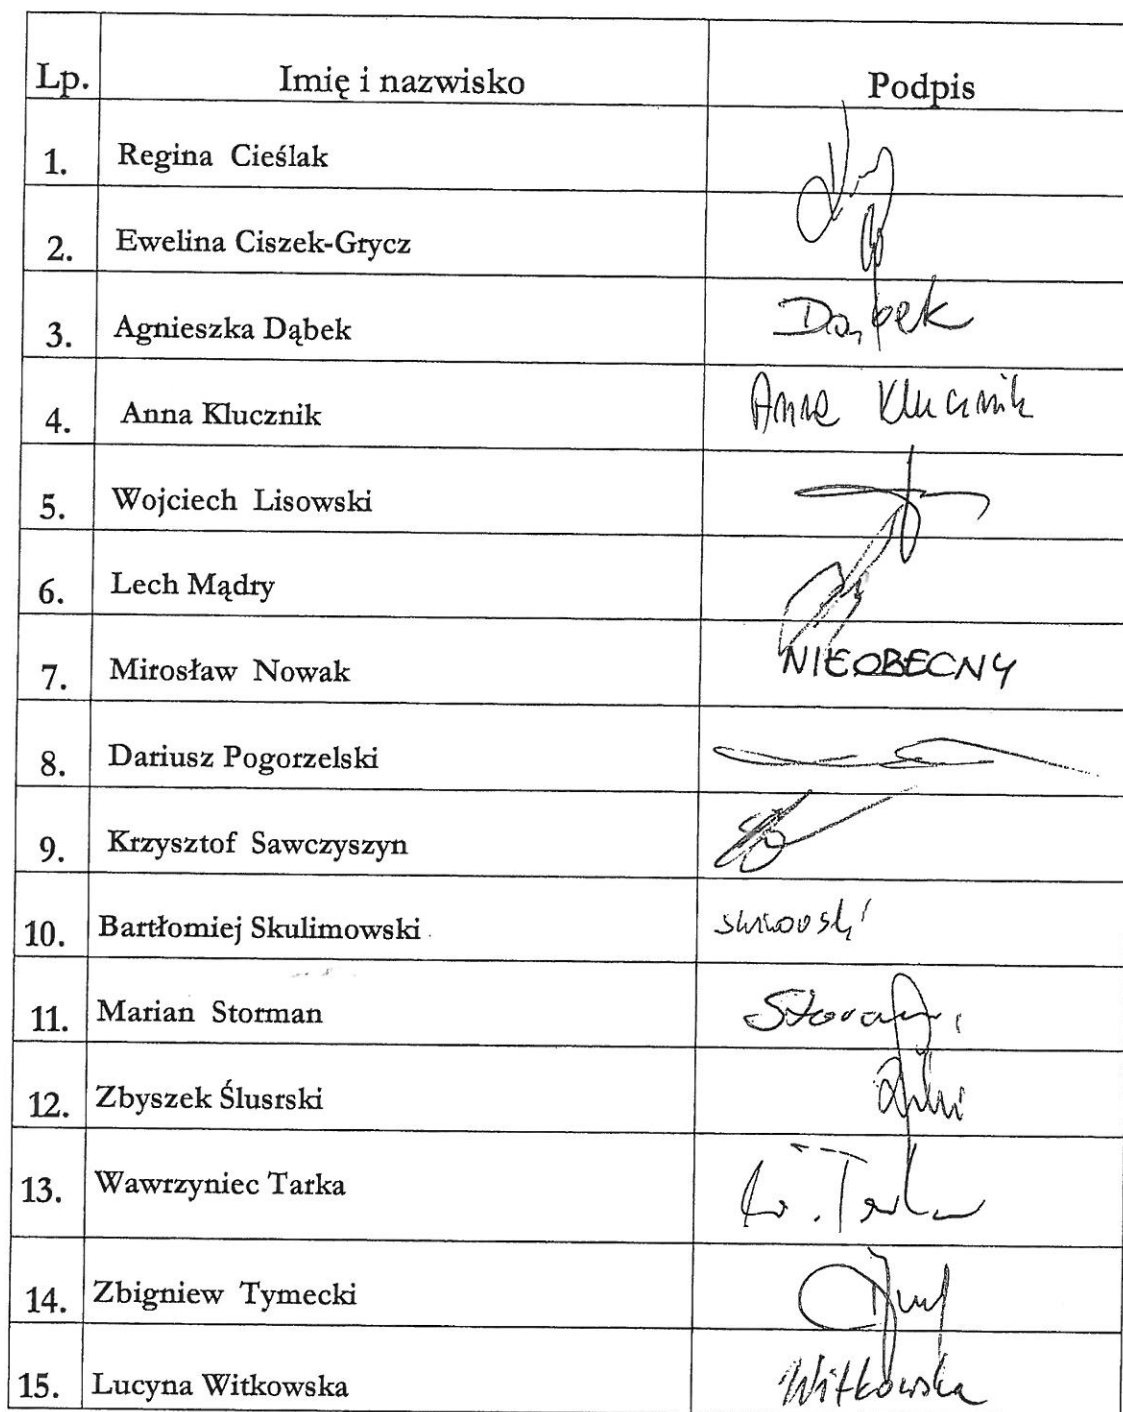 Lp. Imię i nazwisko Podpis
1. Regina Cieślak
2. Ewelina Ciszek-Grycz
3. Agnieszka Dąbek Dąbek
4. Anna Klucznik Anna Klucznik
5. Wojciech Lisowski
6. Lech Mądry
7. Mirosław Nowak NIEOBECNY
8. Dariusz Pogorzelski
9. Krzysztof Sawczyszyn
10. Bartłomiej Skulimowski
11. Marian Storman
12. Zbyszek Ślusrski
13. Wawrzyniec Tarka W. Tarka
14. Zbigniew Tymecki
15. Lucyna Witkowska Witkowska